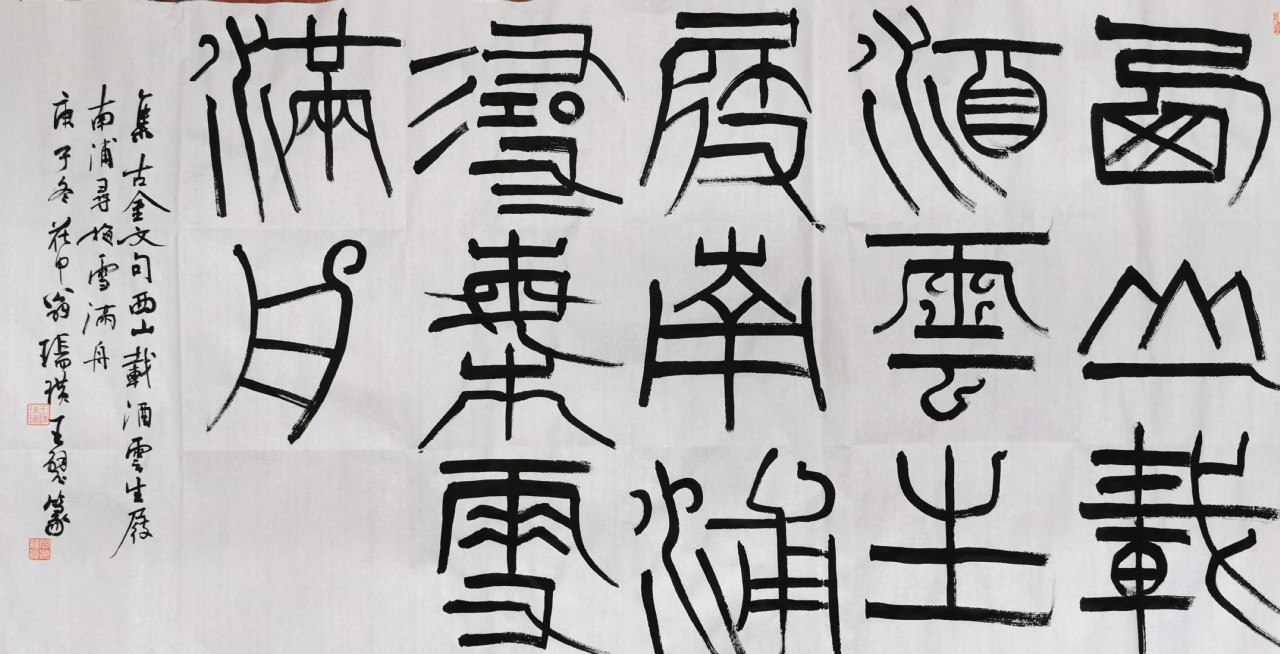 西山載
酒雲生
屐南浦
尋某雪
滿舟
集古金文句西山載酒雲生屐
南浦尋梅雪满舟
庚子冬花甲翁瑞琪王
篆